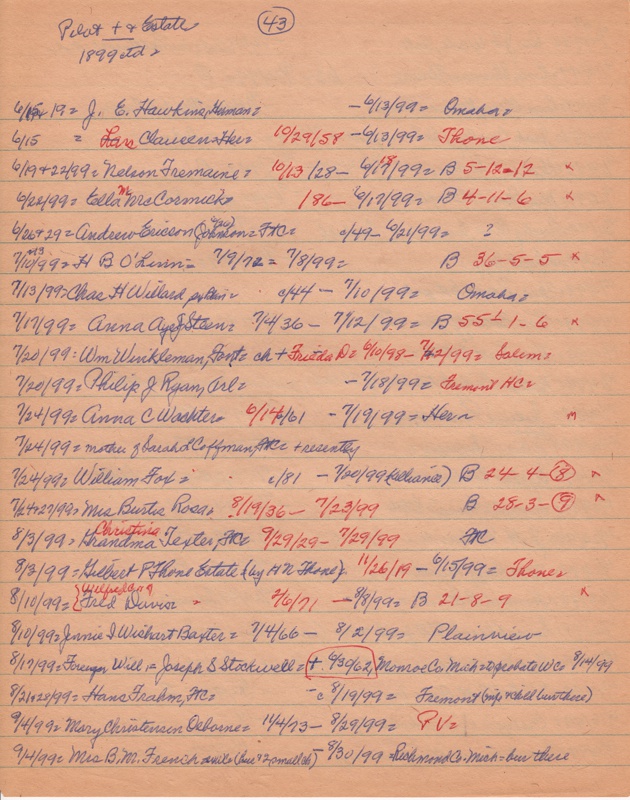 Pilot + & Estate
43
1899 ctd=
6/15 + 19= J. E. Hawkins, Herman= -6/13/99= Omaha=
6/15 = Lars Clausen=Her= 10/29/58 -6/13/99= Thone
6/19+22/99= Nelson Fremaine= 10/13/28- 6/18/99= B 5-12-12 x
6/22/99= Ella M McCormick 186- 6/17/99= B 4-11-6 x
6/26+29= Andrew Ericson (Johnson= FHC= c/49- 6/21/99= ?
7/10+13/99= H B O'Linn= 7/9/72= 7/8/99= B 36-5-5 x
7/13/99=Chas H Willard c/44 - 7/10/99= Omaha=
7/17/99= Anna Stern= 7/4/36 - 7/12/99= B 55-1-6 x
7/20/99: Wm Winkleman, Font= ch + Frieda D= 6/10/98- 7/12/99= Salem=
7/20/99= Philip J Ryan, Arl= -7/18/99= Fremont HC=
7/24/99= Anna C Wachter= 6/14/61 - 7/19/99=Her
7/24/99= mother of Sarah L Coffman, + recently
7/24/99= William Fox= c/81 - 7/20/99 (Alliance) B 24-4-8 x
7/24+27/99= Mrs Burtis Rosa= 8/19/36- 7/23/99 B 28-3-9 x
8/3/99= Christina Grandma Texter, 9/29/29- 7/29/99
8/3/99= Gilbert P Thone Estate (by H N Thone) 11/26/19 - 6/15/99= Thone=
8/10/99= Fred Davis = 2/6/71 -8/8/99= B 21-8-9 x
8/10/99= Jennie I Wichart Baxter= 7/4/66- 8/2/99= Plainview
8/17/99= Foreign Will= Joseph S Stockwell= + 4/30/62, Monroe Co. Mich= to probate WC= 8/14/99
8/21+28/99= Hans Frahm, -c 8/19/99= Fremont (wife + child bur there)
9/4/99= Mary Christensen Osborne= 11/4/73- 8/29/99= PV=
9/4/99= Mrs B. M. French = wife (hus + 2 small ch) - 8/30/99 =Richmond Co. Mich=bur there